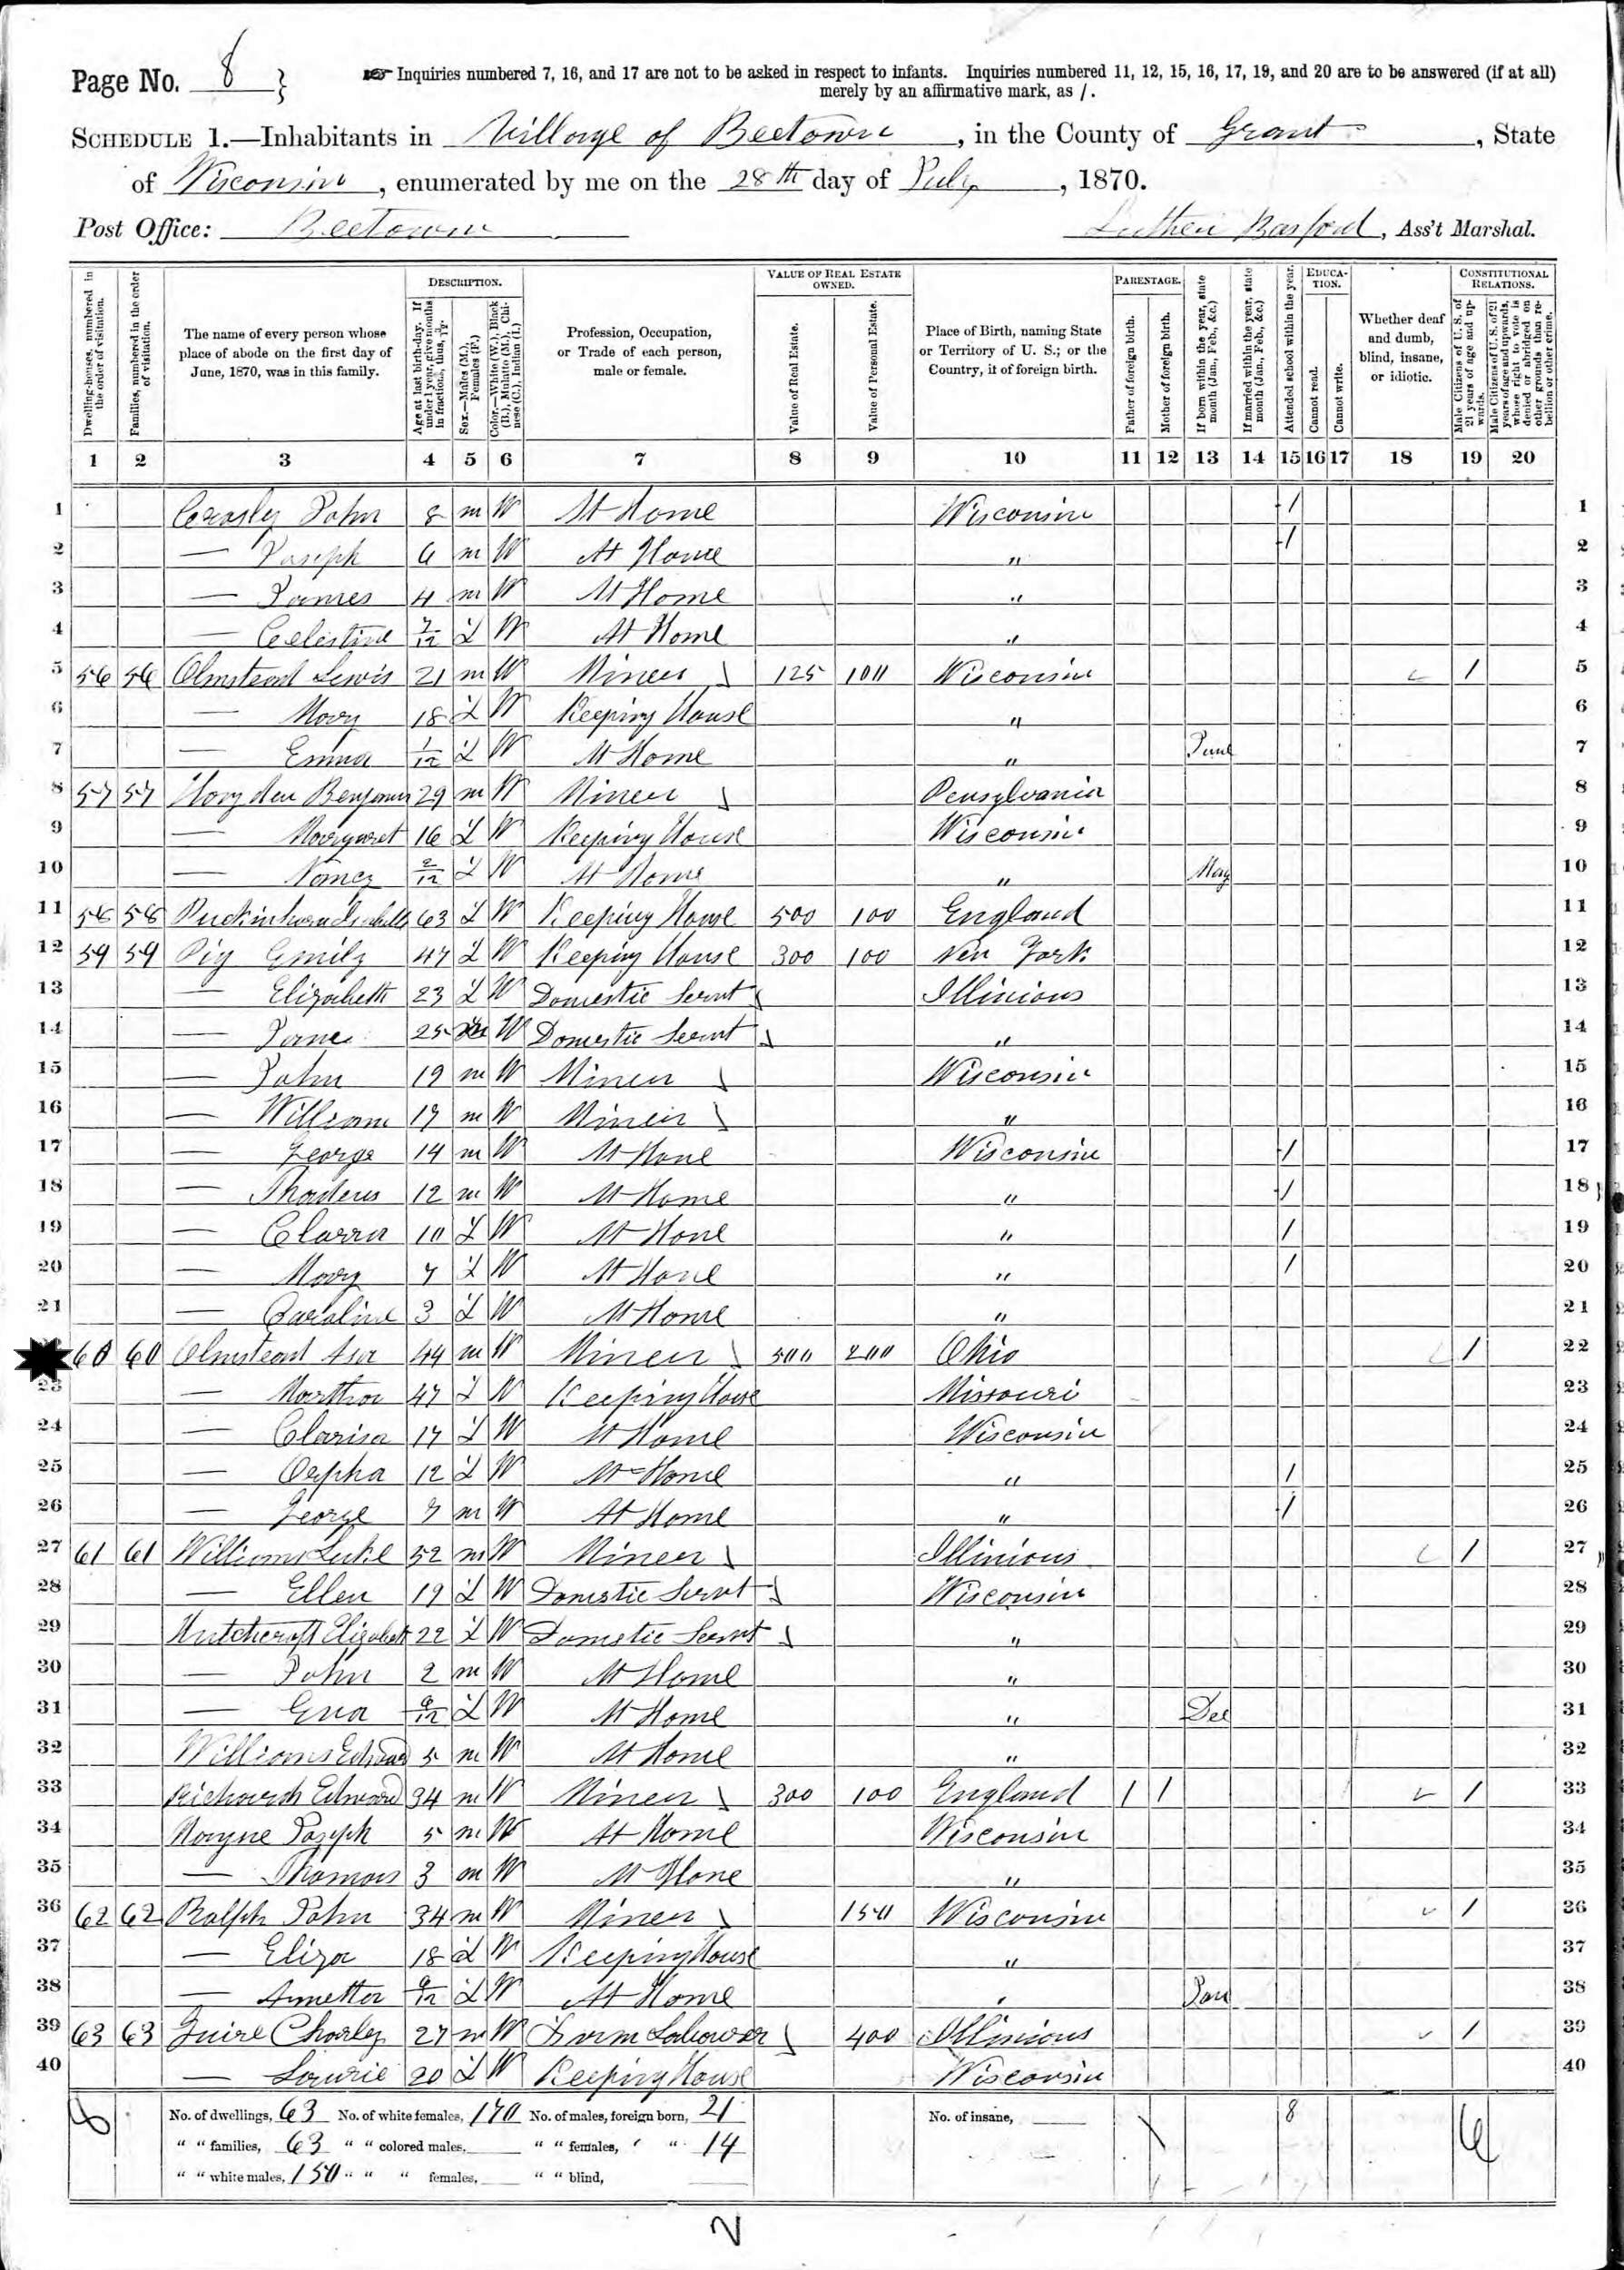 Page No. 8 }
Inquiries numbered 7, 16, and 17 are not to be asked in respect to infants. Inquiries numbered 11, 12, 15, 16, 17, 19, and 20 are to be answered (if at all)
merely by an affirmative mark, as /.
SCHEDULE 1.—Inhabitants in Village of Beetown, in the County of Grant, State
of Wisconsin, enumerated by me on the 28th day of July, 1870.
Post Office: Beetown Luther Basford, Ass't Marshal.
Dwelling-houses, numbered in the order of visitation.
Families, numbered in the order of visitation.
The name of every person whose place of abode on the first day of June, 1870, was in this family.
DESCRIPTION.
Age at last birth-day. If under 1 year, give months in fractions, thus, 3/12.
Sex.—Males (M.), Females (F.)
Color.—White (W.), Black (B.), Mulatto (M.), Chinese (C.), Indian (I.)
Profession, Occupation, or Trade of each person, male or female.
VALUE OF REAL ESTATE OWNED.
Value of Real Estate.
Value of Personal Estate.
Place of Birth, naming State or Territory of U. S.; or the Country, if of foreign birth.
PARENTAGE.
Father of foreign birth.
Mother of foreign birth.
If born within the year, state month (Jan., Feb., &c.)
If married within the year, state month (Jan., Feb., &c.)
Attended school within the year.
EDUCATION.
Cannot read.
Cannot write.
Whether deaf and dumb, blind, insane, or idiotic.
CONSTITUTIONAL RELATIONS.
Male Citizens of U. S. of 21 years of age and upwards.
Male Citizens of U. S. of 21 years of age and upwards, whose right to vote is denied or abridged on other grounds than rebellion or other crime.
1 2 3 4 5 6 7 8 9 10 11 12 13 14 15 16 17 18 19 20
1 John 8 m W At Home Wisconsin / 1
2 — Joseph 6 m W At Home " / 2
3 — James 4 m W At Home " 3
4 — Celestine 7/12 F W At Home " 4
5 56 56 Olmstead Lewis 21 m W Miner 125 100 Wisconsin / 5
6 — Mary 18 F W Keeping House " 6
7 — Emma 1/12 F W At Home " June 7
8 57 57 Benjamin 29 m W Miner Pensylvania 8
9 — Margaret 16 F W Keeping House Wisconsin 9
10 — Nancy 2/12 F W At Home " May 10
11 58 58 63 F W Keeping House 500 100 England 11
12 59 59 Pig Emily 47 F W Keeping House 300 100 New York 12
13 — Elizabeth 23 F W Domestic Servt Illinious 13
14 — Jane 25 W Domestic Servt " 14
15 — John 19 m W Miner Wisconsin 15
16 — William 17 m W Miner " 16
17 — George 14 m W At Home Wisconsin / 17
18 — Thaderus 12 m W At Home " / 18
19 — Clarra 10 F W At Home " / 19
20 — Mary 7 F W At Home " / 20
21 — Caraline 3 F W At Home " 21
60 60 Olmstead Asa 44 m W Miner 500 200 Ohio / 22
23 — Martha 47 F W Keeping House Missouri 23
24 — Clarisa 17 F W At Home Wisconsin 24
25 — Orpha 12 F W At Home " / 25
26 — George 7 m W At Home " / 26
27 61 61 Williams Luke 52 m W Miner Illinious / 27
28 — Ellen 19 F W Domestic Servt Wisconsin 28
29 Hutchcroft Elizabeth 22 F W Domestic Servt " 29
30 — John 2 m W At Home " 30
31 — Eva F W At Home " Dec 31
32 Williams Edward 5 m W At Home " 32
33 Edward 34 m W Miner 300 100 England / / / 33
34 Wayne Joseph 5 m W At Home Wisconsin 34
35 — Thomas 3 m W At Home " 35
36 62 62 Ralph John 34 m W Miner 150 Wisconsin / 36
37 — Eliza 18 F W Keeping House " 37
38 — Annetta F W At Home " Jan 38
39 63 63 Guire Charley 27 m W Farm Laborer 400 Illinious / 39
40 — Laurie 20 F W Keeping House Wisconsin 40
8 No. of dwellings, 63 No. of white females, 170 No. of males, foreign born, 21 No. of insane, 8 6
" " families, 63 " " colored males, " " females, " " 14
" " white males, 150 " " " females, " " blind,
2